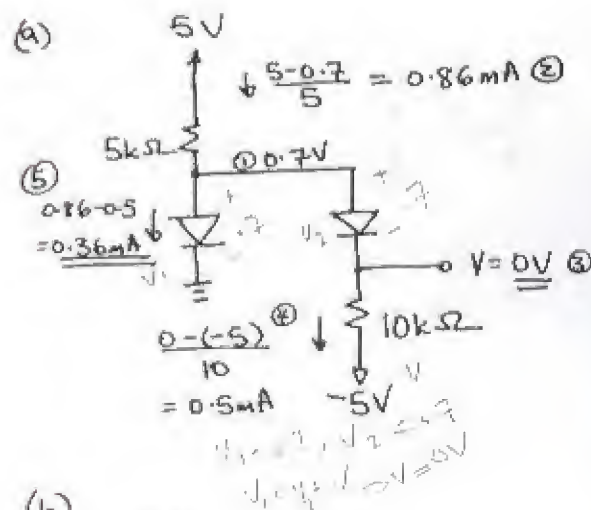 (a)
5V
↓ 5-0.7 / 5 = 0.86mA ②
5kΩ
① 0.7V
⑤
0.86-0.5 ↓
=0.36mA
V = 0V ③
0-(-5) / 10 ④ ↓
= 0.5mA
10kΩ
-5V
(b)